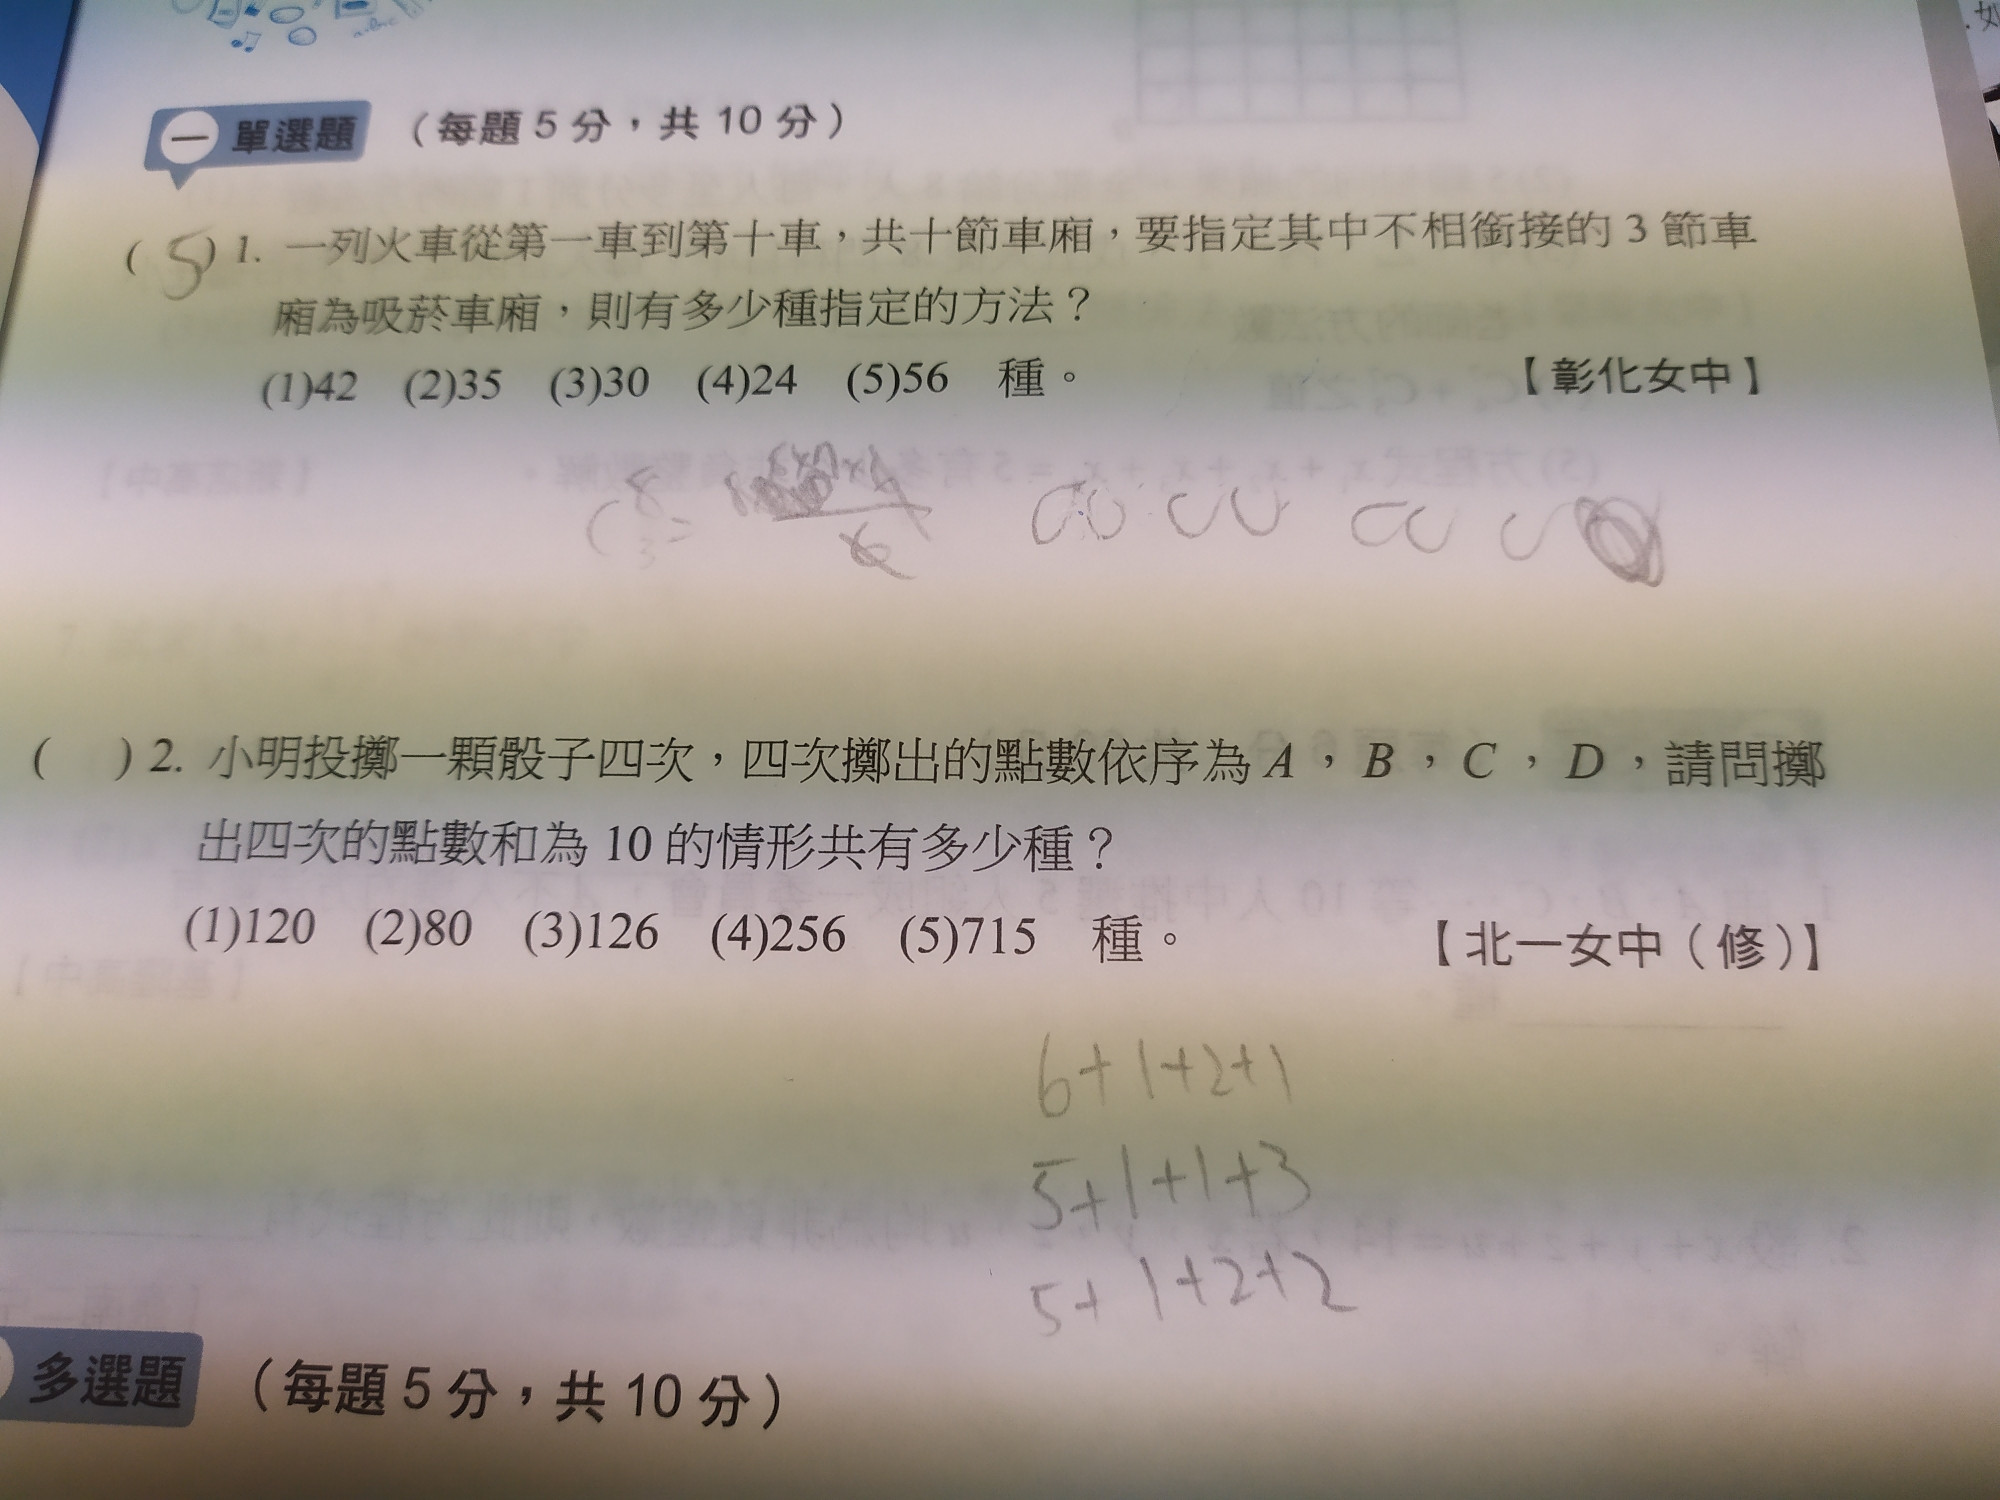 一 單選題 （每題 5 分，共 10 分）
( 5 ) 1. 一列火車從第一車到第十車，共十節車廂，要指定其中不相銜接的 3 節車
廂為吸菸車廂，則有多少種指定的方法？
(1)42 (2)35 (3)30 (4)24 (5)56 種。 【彰化女中】
C 8 3 =
6
( ) 2. 小明投擲一顆骰子四次，四次擲出的點數依序為 A，B，C，D，請問擲
出四次的點數和為 10 的情形共有多少種？
(1)120 (2)80 (3)126 (4)256 (5)715 種。 【北一女中（修）】
6+1+2+1
5+1+1+3
5+1+2+2
多選題 （每題 5 分，共 10 分）